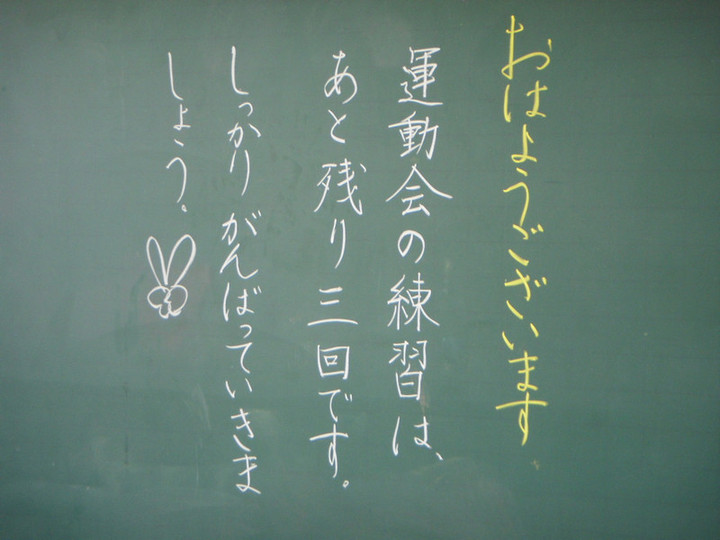 おはようございます
運動会の練習は、
あと残り三回です。
しっかりがんばっていきま
しょう。